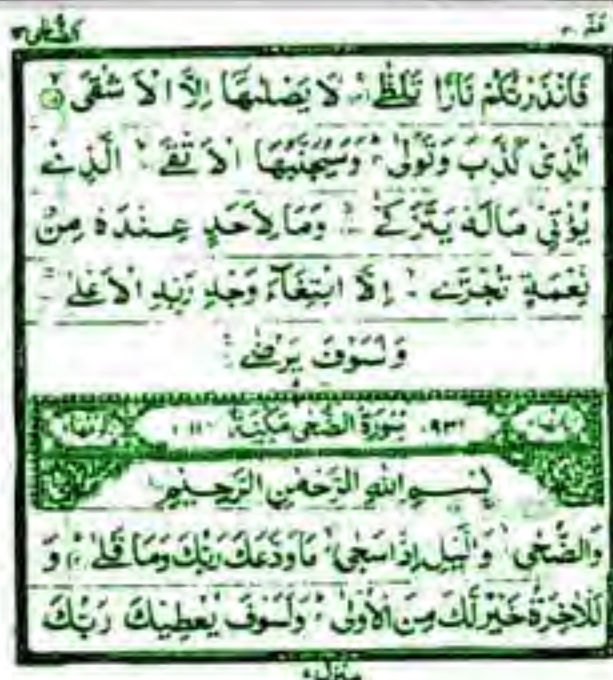 عَمَّ ٣٠
فَاَنْذَرْتُكُمْ نَارًا تَلَظّٰى ۚ لَا يَصْلٰىهَا اِلَّا الْاَشْقَى ۙ
الَّذِىْ كَذَّبَ وَتَوَلّٰى ۭ وَسَيُجَنَّبُهَا الْاَتْقَى ۙ الَّذِىْ
يُؤْتِىْ مَالَهٗ يَتَزَكّٰى ۚ وَمَا لِاَحَدٍ عِنْدَهٗ مِنْ
نِّعْمَةٍ تُجْزٰٓى ۙ اِلَّا ابْتِغَآءَ وَجْهِ رَبِّهِ الْاَعْلٰى ۚ
وَلَسَوْفَ يَرْضٰى
(٩٣) سُوْرَةُ الضُّحٰى مَكِّيَّةٌ (١١)
بِسْمِ اللّٰهِ الرَّحْمٰنِ الرَّحِيْمِ
وَالضُّحٰى ۙ وَالَّيْلِ اِذَا سَجٰى ۙ مَا وَدَّعَكَ رَبُّكَ وَمَا قَلٰى ۭ وَ
لَلْاٰخِرَةُ خَيْرٌ لَّكَ مِنَ الْاُوْلٰى ۭ وَلَسَوْفَ يُعْطِيْكَ رَبُّكَ